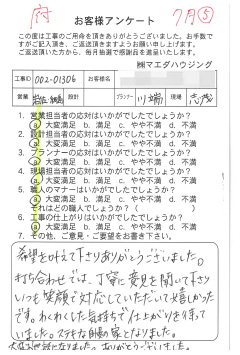 府
7月⑤
お客様アンケート
この度は工事のご用命を頂きありがとうございました。お手数で
すがご記入頂き、ご返送頂きますようお願い申し上げます。
ご返送頂いた方から、毎月抽選で感謝品を進呈いたします。
㈱マエダハウジング
工事ID 002-01306 お客様名
営業 プランナー 川端 現場
1. 営業担当者の応対はいかがでしたでしょうか?
ⓐ 大変満足 b. 満足 c. やや不満 d. 不満
2. 設計担当者の応対はいかがでしたでしょうか?
ⓐ 大変満足 b. 満足 c. やや不満 d. 不満
3. プランナーの応対はいかがでしたでしょうか?
ⓐ 大変満足 b. 満足 c. やや不満 d. 不満
4. 現場担当者の応対はいかがでしたでしょうか?
ⓐ 大変満足 b. 満足 c. やや不満 d. 不満
5. 職人のマナーはいかがでしたでしょうか?
ⓐ 大変満足 b. 満足 c. やや不満 d. 不満
それはどの職人でしょうか?( )
6. 工事の仕上がりはいかがでしたでしょうか?
ⓐ 大変満足 b. 満足 c. やや不満 d. 不満
7. その他、ご意見・ご要望をお書き下さい。
希望を叶えて下さりありがとうございました。
打ち合わせでは、丁寧に意見を聞いて下さり
いつも笑顔で対応していただいて嬉しかった
です。わくわくした気持ちで仕上がりを待って
いました。ステキな自慢の家となりました。
大変お世話になりました。ありがとうございました。